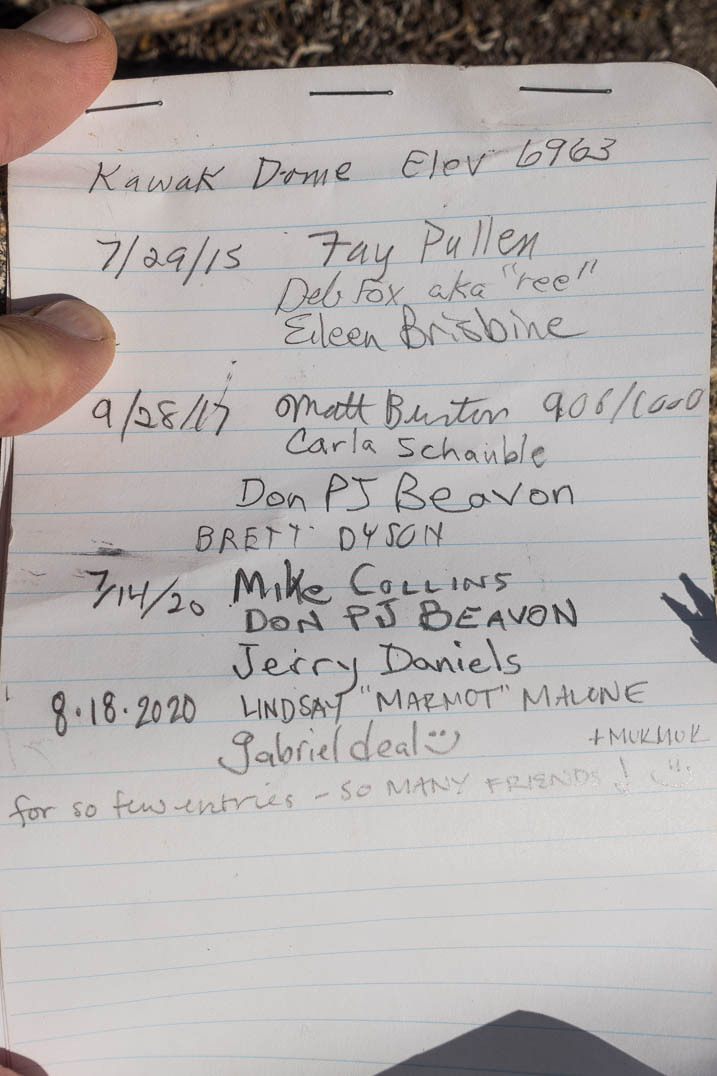 Kawak Dome Elev 6963
7/29/15 Fay Pullen
Deb Fox aka "ree"
Eileen Brisbine
9/28/17 Matt Burton 906/1000
Carla Schauble
Don PJ Beavon
BRETT DYSON
7/14/20 Mike COLLINS
DON PJ BEAVON
Jerry Daniels
8.18.2020 LINDSAY "MARMOT" MALONE
gabriel deal :) +MUKMUK
for so few entries - SO MANY FRIENDS! :)